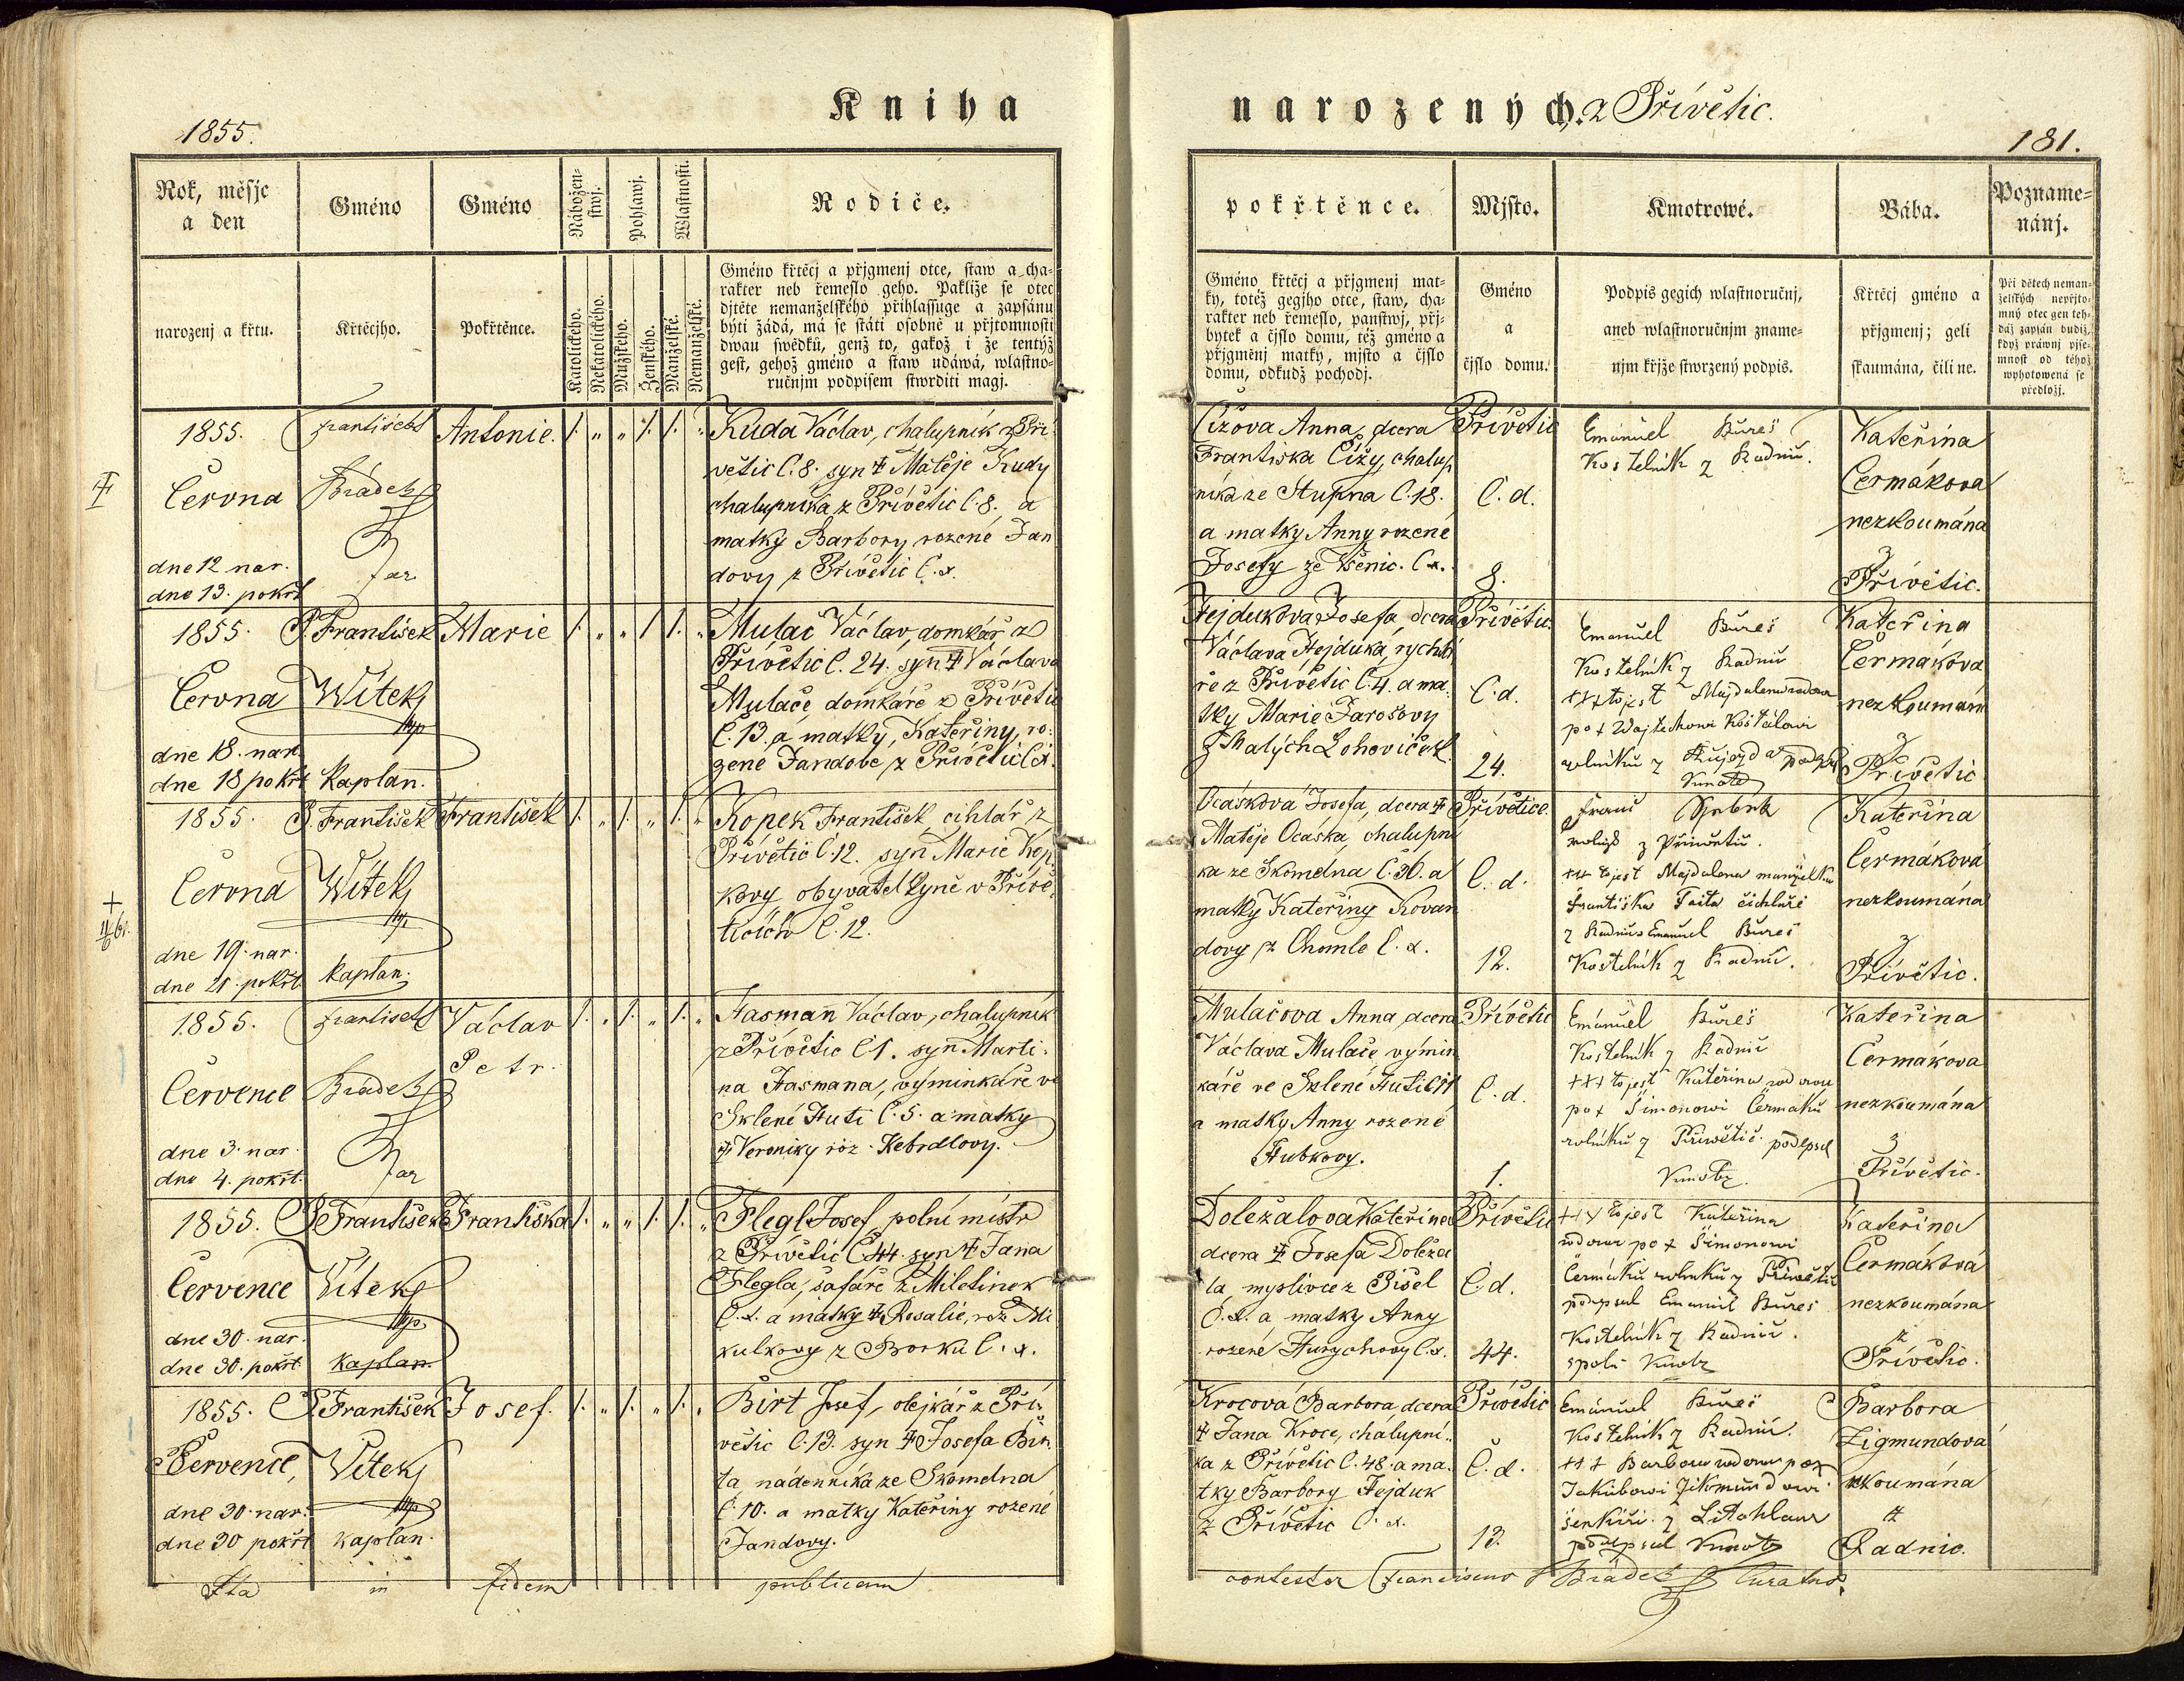 Kniha
narozených z Přívětic.
1855.
181.
Rok, měsjc
a den
Gméno
Gméno
Nábožen-
stwj.
Pohlawj.
Wlastnosti.
Rodiče.
narozenj a křtu.
Křtěcjho.
Pokřtěnce.
Katolického.
Nekatolického.
Mužského.
Ženského.
Manželské.
Nemanželské.
Gméno křtěcj a přjgmenj otce, staw a cha-
rakter neb řemeslo geho. Pakliže se otec
djtěte nemanželského přihlassuge a zapsánu
býti žádá, má se státi osobně u přjtomnosti
dwau swědků, genž to, gakož i že tentýž
gest, gehož gméno a staw udáwá, wlastno-
ručnjm podpisem stwrditi magj.
pokřtěnce.
Mjsto.
Kmotrowé.
Bába.
Pozname-
nánj.
Gméno křtěcj a přjgmenj mat-
ky, totéž gegjho otce, staw, cha-
rakter neb řemeslo, panstwj, přj-
bytek a čjslo domu, též gméno a
přjgměnj matky, mjsto a čjslo
domu, odkudž pocházj.
Gméno
a
čjslo domu.
Podpis gegich wlastnoručnj,
aneb wlastnoručnjm zname-
njm křjže stwrzený podpis.
Křtěcj gméno a
přjgmenj; geli
skaumána, čili ne.
Při dětech neman-
želských nepřjto-
mný otec gen teh-
dáž zapsán budiž,
když práwnj pjse-
mnost od téhož
wyhotowená se
předložj.
1855.
Června
dne 12 nar.
dne 13. pokřt
František
Brádek
far
Antonie.
Kuda Václav, chalupník z Pří
větic č. 8. syn ‡ Matěje Kudy
chalupníka z Přívětic č. 8. a
matky Barbory rozené Jan
dovy z Přívětic č. d.
Čížova Anna, dcera
Františka Čížy, chalup
níka ze Stupna č. 18.
a matky Anny rozené
Josefy ze Všenic. č. d.
Přívětic
č. d.
8.
Emanuel Bureš
Kostelník z Radnic.
Kateřina
Čermákova
nezkoumána
z
Přívětic.
1855.
Června
dne 18. nar.
dne 18 pokřt
P. František
Witek
mp
kaplan.
Marie
Mulač Václav, domkář z
Přívětic č. 24. syn ‡ Václava
Mulače domkáře z Přívětic
č. 13. a matky, Kateřiny, ro:
zené Jandobe, z Přívětic č. d.
Hejdukova Josefa, dcera
Václava Hejduka, rychtá
ře z Přívětic č. 4. a ma
tky Marie Jarošovy
z Malých Lohoviček.
Přívětic.
č. d.
24.
Emanuel Bureš
Kostelník z Radnic
+++ tojest Majdalena vdova
po + Wojtechowi Košťálowi
rolníku z
Kmotr
Kateřina
Čermákova
nezkoumán
z
Přívětic
1855.
Června
dne 19. nar.
dne 21. pokřt.
P. František
Witek
mp
kaplan.
František
Kopek František cihlář z
Přívětic č. 12. syn Marie Kop
kovy obyvatelkyně v Přívě
ticích č. 12.
Ocásková Josefa, dcera ‡
Matěje Ocáska, chalupní
ka ze Skomelna č. 36. a
matky Kateřiny Kovan
dovy z Chomle č. d.
Přívětice.
č. d.
12.
z Přiwětic.
+++ tojest Majdalena manželka
Františka Taita čichláře
z Radnic Emanuel Bureš
Kostelník z Radnic.
Kateřina
Čermáková
nezkoumána
z
Přívětic.
1855.
Července
dne 3. nar.
dne 4. pokřt.
František
Brádek
far
Václav
Petr.
Hasman Václav, chalupník
z Přívětic č 1. syn Marti:
na Hasmana, výminkáře ve
Sklené Huti č. 5. a matky
‡ Veroniky roz. Kebrdlovy.
Mulačova Anna, dcera
Václava Mulače, výmin
káře ve Sklené Huti č 11
a matky Anny rozené
Hubkovy.
Přívětic
č. d.
1.
Emanuel Bureš
Kostelník z Radnic
+++ tojest Kateřina vdova
po + Šimonowi Čermáku
rolníku z Přiwětic. podepsal
Kmotr.
Kateřina
Čermákova
nezkoumána
z
Přívětic.
1855.
Července
dne 30. nar.
dne 30. pokřt.
P. František
Vitek
mp
kaplan.
Františka
Flegl Josef, polní mistr
z Přívětic č 44. syn ‡ Jana
Flegla, šafáře z Miletinek
č. d. a matky ‡ Rosalie, roz. Mi
kulkovy z Borku č. d.
Doležalova Kateřina
dcera ‡ Josefa Doleža
la, myslivce z Pisel
č. d. a matky Anny
rozené Hurychovy č. d.
Přívětic
č. d.
44.
+++ tojest Kateřina
vdova po + Šimonowi
Čermáku rolníku z Přiwětic
podepsal Emanuel Bureš
Kostelník z Radnic.
spolu Kmotr
Kateřina
Čermáková
nezkoumána
z
Přívětic.
1855.
Července,
dne 30. nar.
dne 30 pokřt
P. František
Vítek
mp
kaplan.
Josef.
Birt Josef, olejkář z Pří:
větic č. 13. syn ‡ Josefa Bir
ta, nádenníka ze Skomelna
č. 10. a matky Kateřiny rozené
Jandovy.
Krocová Barbora, dcera
‡ Jana Kroce, chalupní..
ka z Přívětic č. 48. a ma.
tky Barbory Fejduk
z Přívětic č. d.
Přívětic
č. d.
13.
Emanuel Bureš
Kostelník z Radnic.
+++ Barbora vdova po +
Jakubowi Zikmundowi
šenkýři z Litohlaw
podepsal Kmotr
Barbora
Zigmundová
zkoumána
z
Radnic.
+
11/6 61.
Ita in fidem publicam
contestor Franciscus Brádek Curatus.